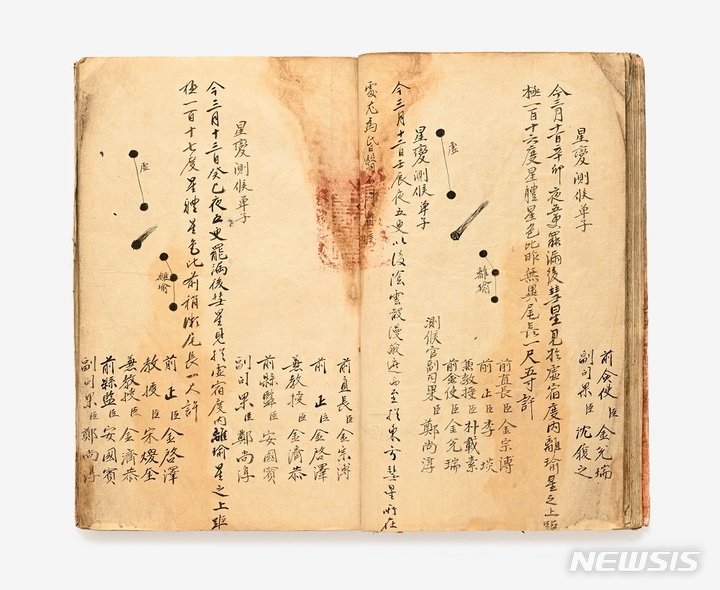 前僉使臣金允瑞
副司果臣沈之
星變測候單子
今三月十一日辛卯夜五更罷漏後彗星見於虛宿度內離瑜星之上距
極一百十六度星體星色比昨無異尾長一尺五寸許
虛
離瑜
前直長臣金宗溥
前正臣李埮
兼教授臣朴載素
前僉使臣金允瑞
測候官副司果臣鄭尚淳
星變測候單子
今三月十二日壬辰夜五更以後陰雲散漫蔽而至於東方彗星所在
處尤為皆翳
前直長臣金宗溥
前正臣金啓澤
兼教授臣金濟恭
前縣監臣安國賓
副司果臣鄭尚淳
星變測候單子
今三月十三日癸巳夜五更罷漏後彗星見於虛宿度內離瑜星之上距
極一百十七度星體星色比前稍微尾長一尺許
虛
離瑜
前正臣金啓澤
教授臣宋
兼教授臣金濟恭
前縣監臣安國賓
副司果臣鄭尚淳
NEWSIS